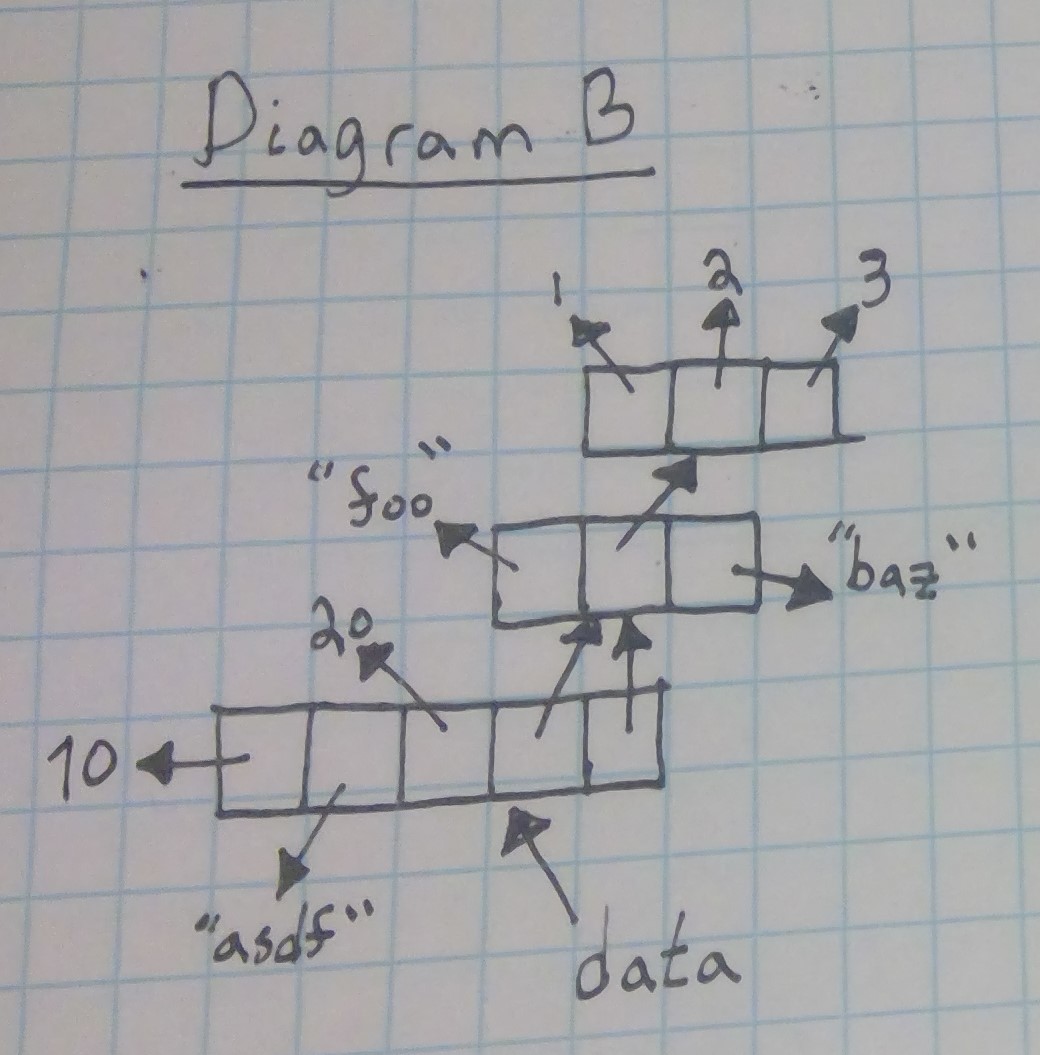 Diagram B
1 2 3
"foo"
"baz"
20
10
"asdf"
data